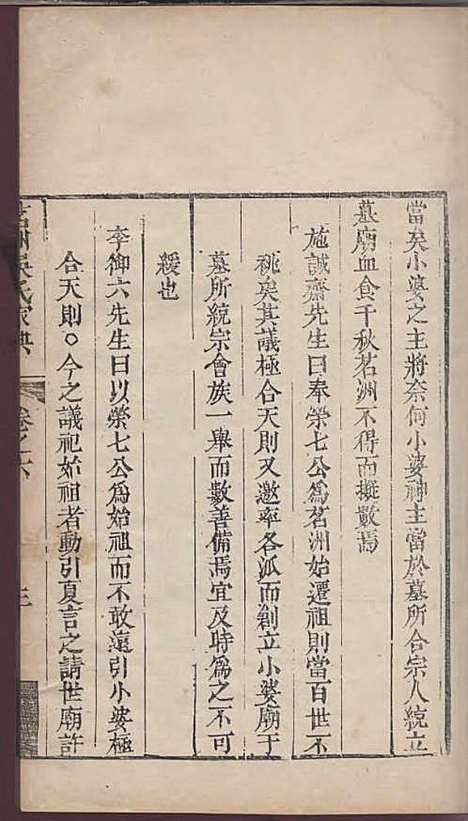 當矣小婆之主將奈何小婆神主當於墓所合宗人統立
墓廟血食千秋茗洲不得而擬數焉
施誠齋先生曰奉榮七公為茗洲始遷祖則當百世不
祧矣其議極合天則又邀率各派而創立小婆廟于
墓所統宗會族一舉而數善備焉宜及時為之不可
緩也
李御六先生曰以榮七公為始祖而不敢遠引小婆極
合天則○今之議祀始祖者動引夏言之請世廟許
茗洲吳氏家典
卷之六
三